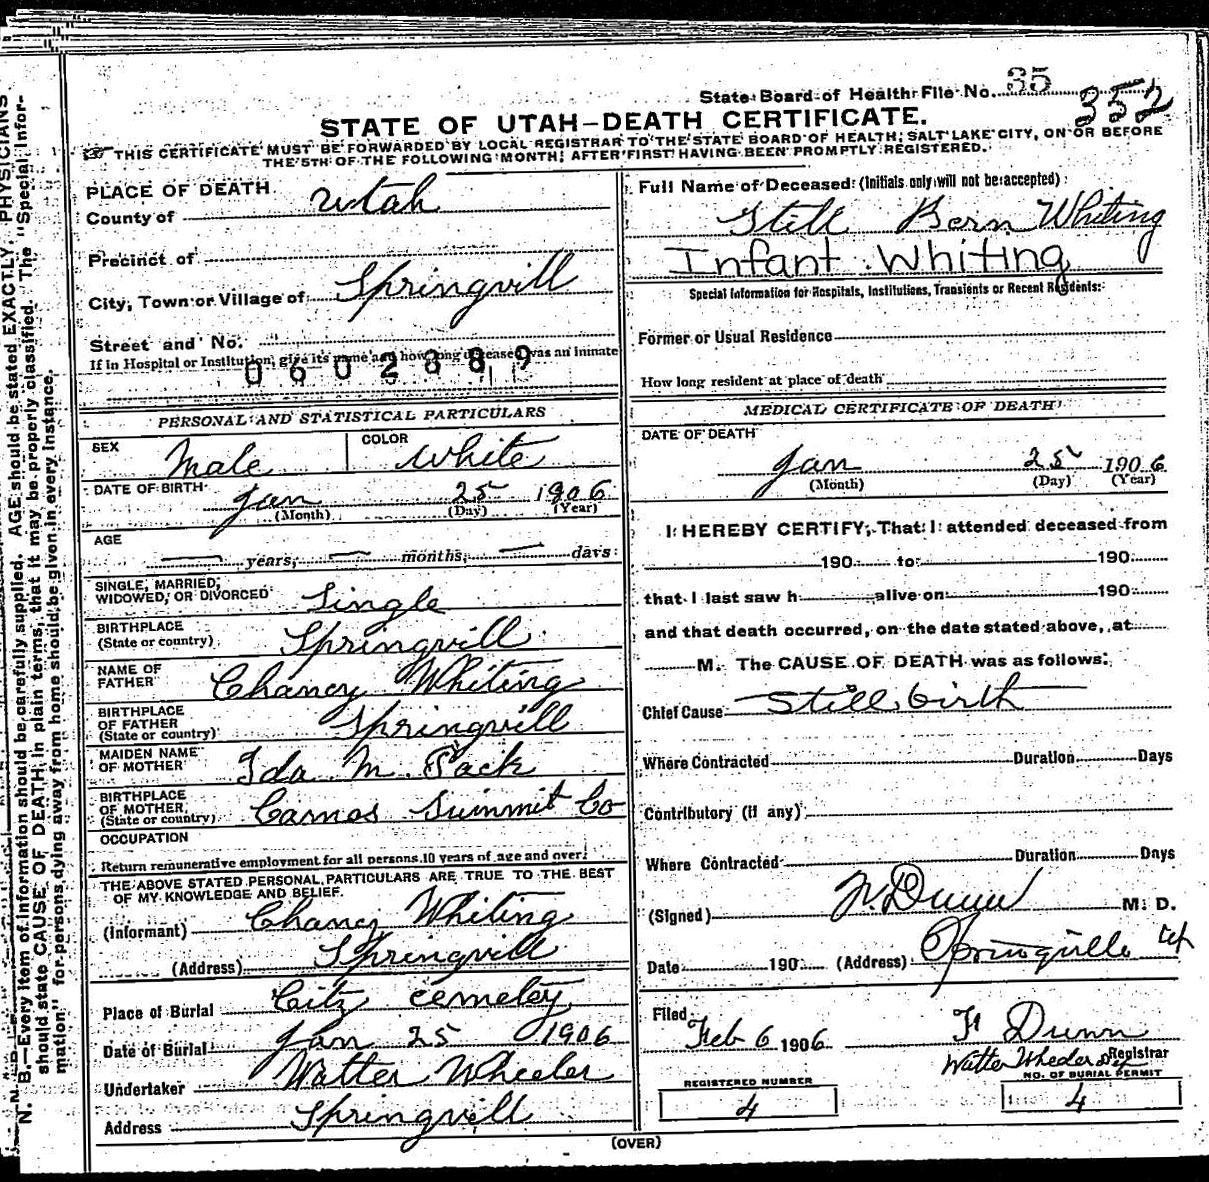 State Board of Health File No. 35
352
STATE OF UTAH—DEATH CERTIFICATE.
THIS CERTIFICATE MUST BE FORWARDED BY LOCAL REGISTRAR TO THE STATE BOARD OF HEALTH, SALT LAKE CITY, ON OR BEFORE
THE 5TH OF THE FOLLOWING MONTH, AFTER FIRST HAVING BEEN PROMPTLY REGISTERED.
PLACE OF DEATH
County of Utah
Precinct of
City, Town or Village of Springvill
Street and No.
If in Hospital or Institution, give its name and how long deceased was an inmate
0602889
PERSONAL AND STATISTICAL PARTICULARS
SEX Male COLOR White
DATE OF BIRTH Jan 25 1906
(Month) (Day) (Year)
AGE
— years, — months, — days
SINGLE, MARRIED,
WIDOWED, OR DIVORCED Single
BIRTHPLACE
(State or country) Springvill
NAME OF
FATHER Chancy Whiting
BIRTHPLACE
OF FATHER
(State or country) Springvill
MAIDEN NAME
OF MOTHER Ida M. Pack
BIRTHPLACE
OF MOTHER
(State or country) Camas Summit Co
OCCUPATION
Return remunerative employment for all persons 10 years of age and over.
THE ABOVE STATED PERSONAL PARTICULARS ARE TRUE TO THE BEST
OF MY KNOWLEDGE AND BELIEF.
(Informant) Chancy Whiting
(Address) Springvill
Place of Burial City cemetey
Date of Burial Jan 25 1906
Undertaker Watter Wheeler
Address Springvill
Full Name of Deceased (Initials only will not be accepted)
Still Born Whiting
Infant Whiting
Special Information for Hospitals, Institutions, Transients or Recent Residents:
Former or Usual Residence
How long resident at place of death
MEDICAL CERTIFICATE OF DEATH
DATE OF DEATH
Jan 25 1906
(Month) (Day) (Year)
I HEREBY CERTIFY, That I attended deceased from
190 to 190
that I last saw h alive on 190
and that death occurred, on the date stated above, at
M. The CAUSE OF DEATH was as follows:
Chief Cause Still birth
Where Contracted Duration Days
Contributory (if any)
Where Contracted Duration Days
(Signed) Dunn M. D.
Date 190 (Address) Springville
Filed
Feb 6 1906 Dunn
Registrar
Watter Wheeler Dep
REGISTERED NUMBER
4
NO. OF BURIAL PERMIT
4
(OVER)
N. B.—Every item of information should be carefully supplied. AGE should be stated EXACTLY. PHYSICIANS
should state CAUSE OF DEATH in plain terms, that it may be properly classified. The "Special Infor-
mation" for persons dying away from home should be given in every instance.